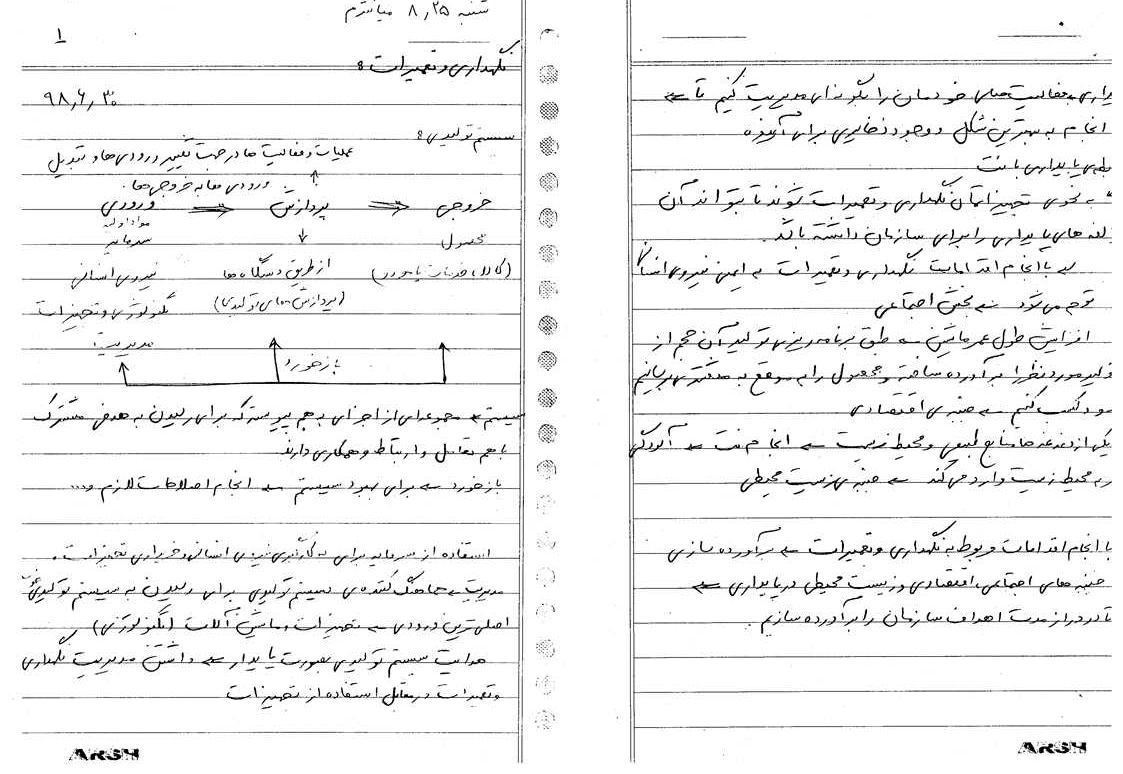 شنبه ۸٫۲۵ میانترم
۱
نگهداری و تعمیرات :
۹۸٫۶٫۳۰
سیستم تولیدی :
عملیات و فعالیت ها در جهت تغییر ورودی ها و تبدیل
ورودی ها به خروجی ها.
ورودی ⇒ پردازش ⇒ خروجی
مواد اولیه
سرمایه ↓ محصول
نیروی انسانی از طریق دستگاه ها (کالا، خدمات یا هردو)
تکنولوژی و تجهیزات (پردازش های تولیدی)
مدیریت
بازخورد
سیستم ← مجموعه ای از اجزای به هم پیوسته که برای رسیدن به هدفی مشترک
با هم تعامل و ارتباط و همکاری دارند.
بازخورد ← برای بهبود سیستم ← انجام اصلاحات لازم و...
استفاده از سرمایه برای به کارگیری نیروی انسانی و خریداری تجهیزات.
مدیریت ← هماهنگ کننده ی سیستم تولیدی برای رسیدن به سیستم تولیدی
اصلی ترین ورودی ← تجهیزات و ماشین آلات (تکنولوژی)
هدایت سیستم تولیدی بصورت پایدار ← داشتن مدیریت نگهداری
و تعمیرات در مقابل استفاده از تجهیزات
ARSH
پایداری ← فعالیت های خودمان را بگونه ای مدیریت کنیم تا ←
انجام به بهترین شکل و وجود ذخایری برای آینده
پایداری با نت
به نحوی تجهیزاتمان نگهداری و تعمیرات شوند تا بتواند آن
لفه های پایداری را برای سازمان داشته باشد.
با انجام اقدامات نگهداری و تعمیرات به ایمنی نیروی انسانی
توجه می شود ← بخش اجتماعی
افزایش طول عمر ماشین ← طبق برنامه ریزی تولید آن حجم از
تولید مورد نظر را برآورده ساخته و محصول را به موقع به مشتری برسانیم
سود کسب کنیم ← جنبه ی اقتصادی
یکی از دغدغه ها منابع طبیعی و محیط زیست ← انجام نت ← آلودگی
به محیط زیست وارد می کند ← جنبه ی زیست محیطی
با انجام اقدامات مربوط به نگهداری و تعمیرات ← برآورده سازی
جنبه های اجتماعی، اقتصادی و زیست محیطی در پایداری ←
تا در دراز مدت اهداف سازمان را برآورده سازیم.
ARSH